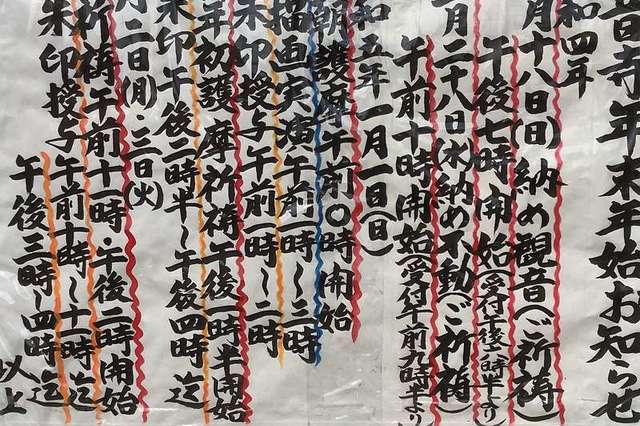 音寺年末年始お知らせ
和四年
月十八日(日)納め観音(ご祈祷)
午後七時開始(受付午後六時半より)
月二十八日(水)納め不動(ご祈祷)
午前十時開始(受付午前九時半より
和五年一月一日(日)
護摩午前〇時開始
描画(実演)午前一時〜三時
朱印授与午前一時〜二時
年初護摩祈祷午後一時半開始
朱印午後二時半〜午後四時迄
月二日(月)・三日(火)
祈祷午前十一時・午後二時開始
朱印授与午前十時〜十一時迄
午後三時〜四時迄
以上